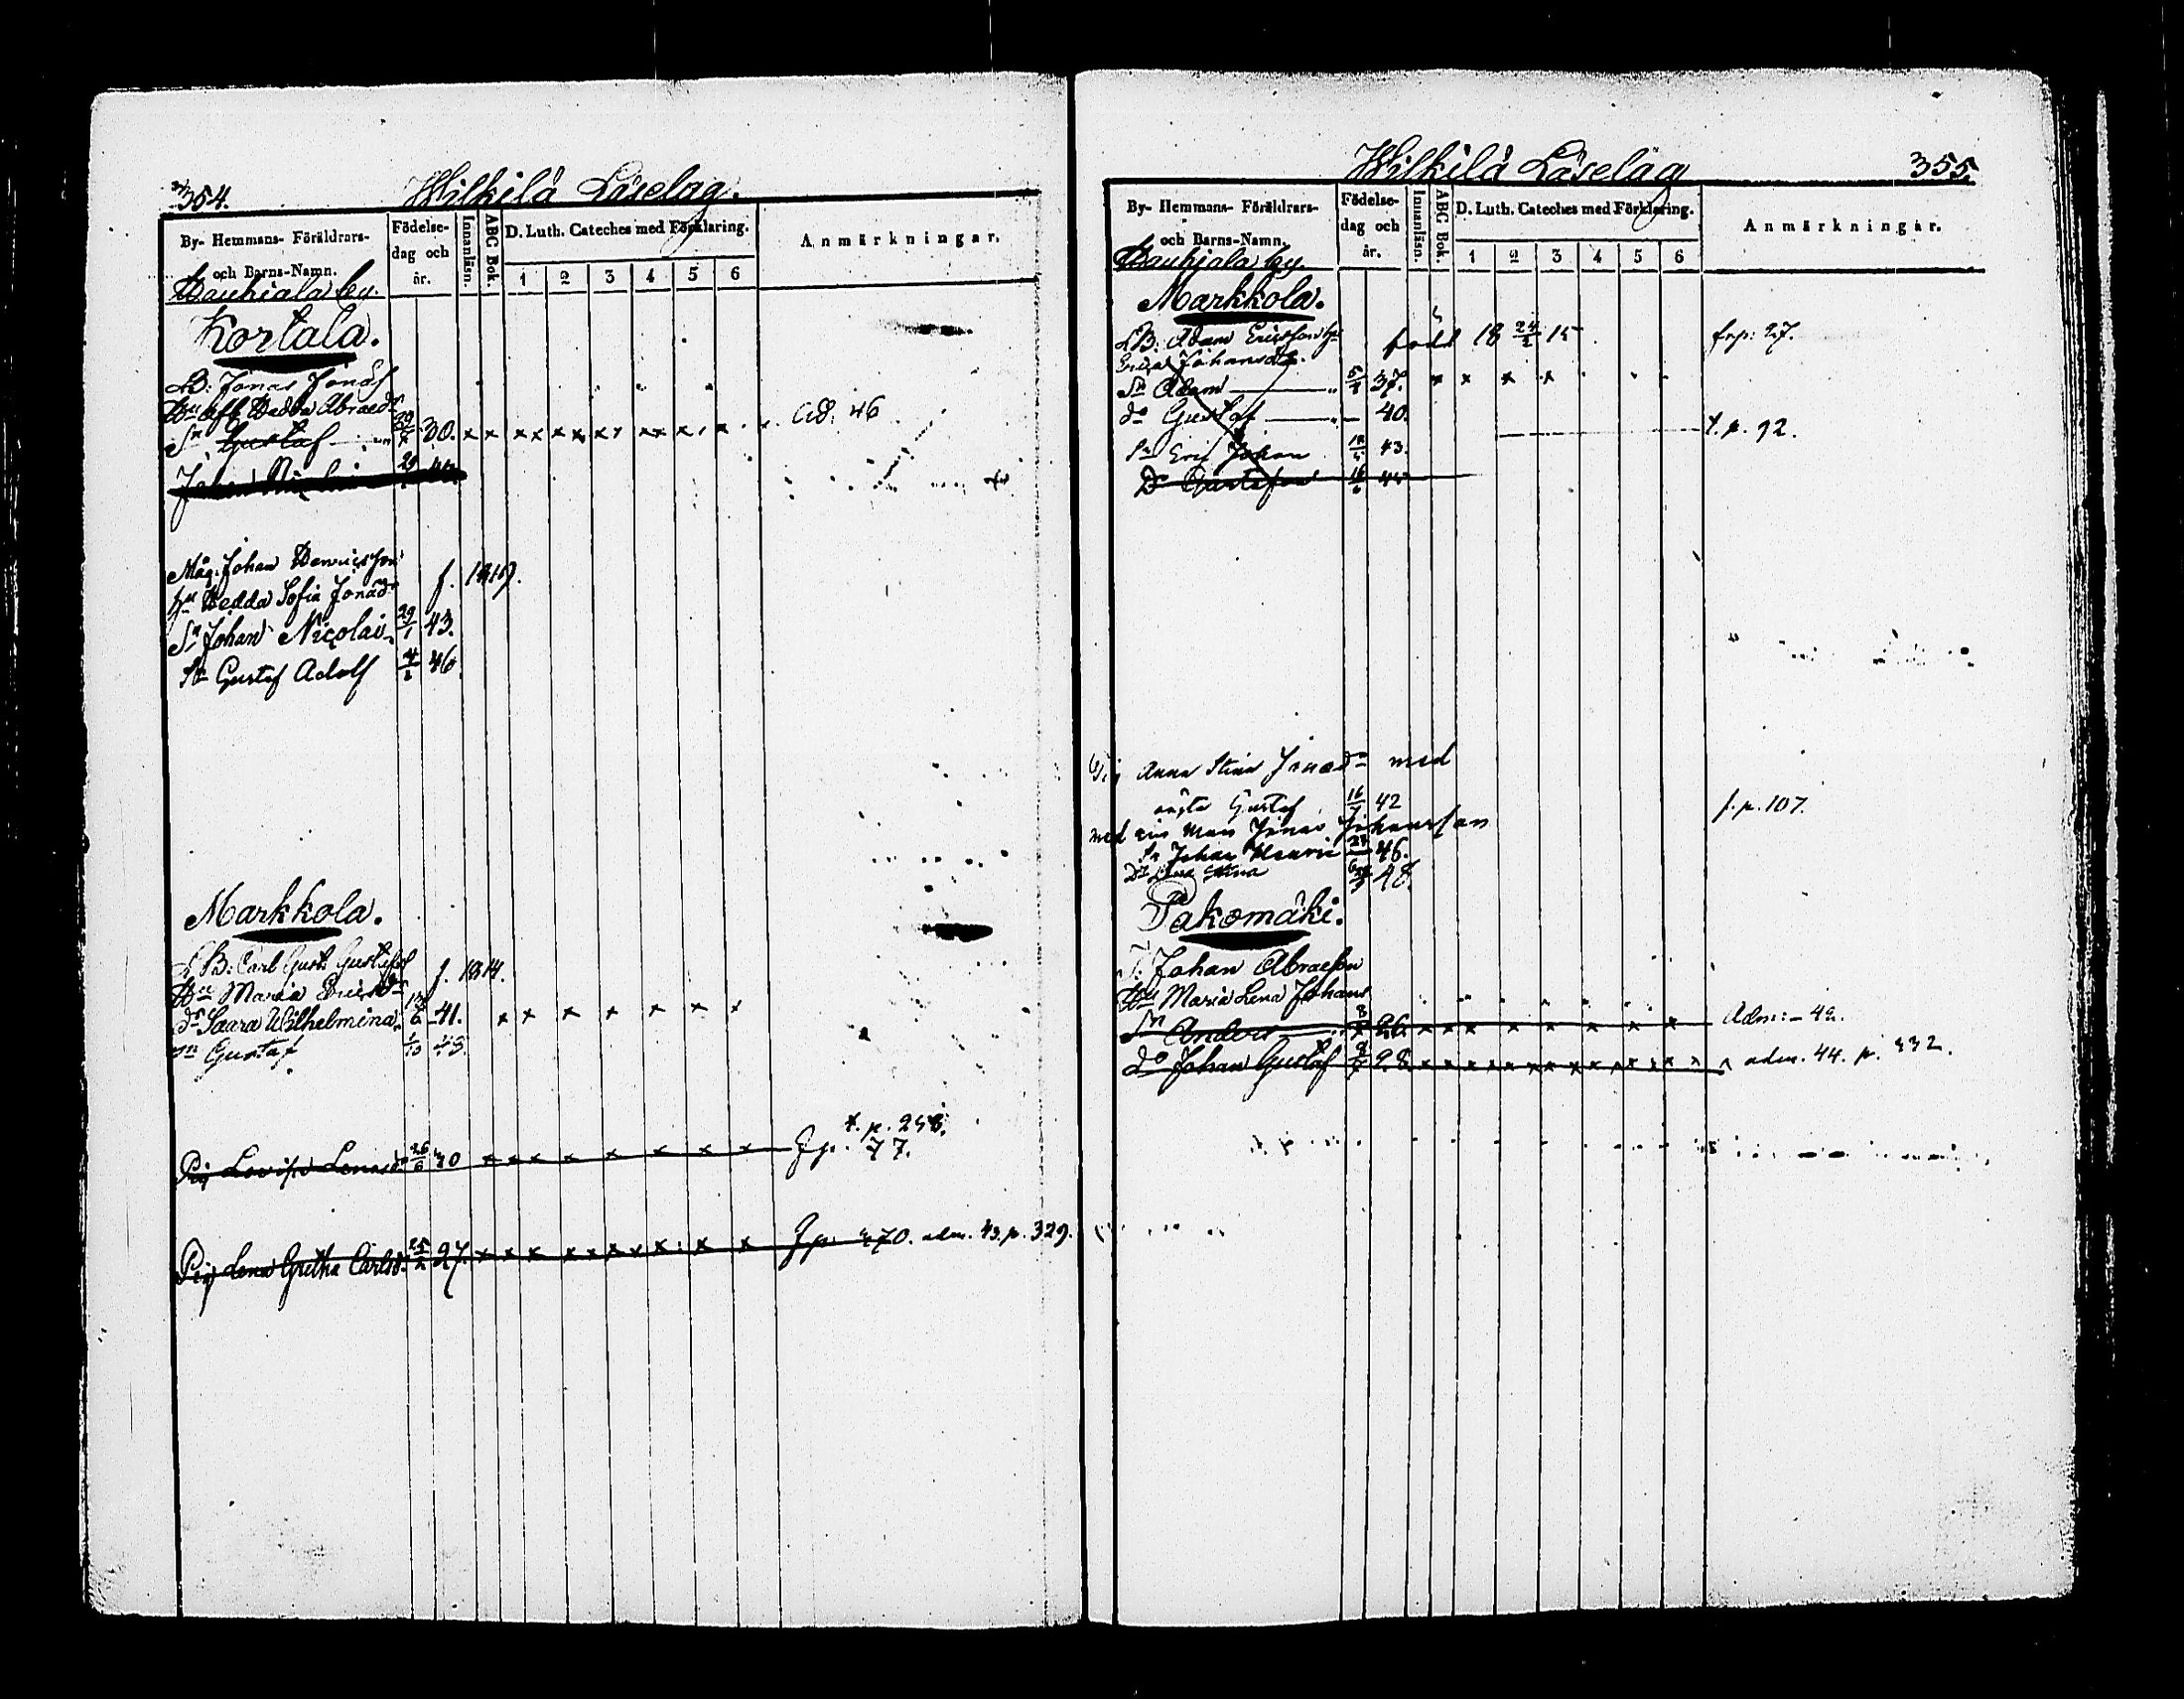 354.
Wilkilä Läselag.
By- Hemmans- Föräldrars- och Barns-Namn.
Födelse- dag och år.
Innanläsn.
ABC Bok.
D. Luth. Cateches med Förklaring.
1 2 3 4 5 6
Anmärkningar.
Hauhiala by.
Kortala.
LB: Jonas Jonas
Hedda Abraed
Sn Gustaf 30. x x x x x x x x x x x Ad: 46
Måg. Johan Henricsson
Hu Hedda Sofia Jonaed f. 1819.
Sn Johan Nicolai 29/1 43.
Sn Gustaf Adolf 4/2 46
Markkola.
LB: Carl Gust. Gustafss f. 1814.
Hu Maria Ericsd
dr Saara Wilhelmina 41. x x x x x x x
Sn Gustaf
t. p. 258.
Pig Lovisa 26/6 x x x x x x x x 77.
Pig Lena Gretha Carlsd. 25/2 27. x x x x x x x x x adm. 43. p. 329.
355.
Wilkilä Läselag
By- Hemmans- Föräldrars- och Barns-Namn.
Födelse- dag och år.
Innanläsn.
ABC Bok.
D. Luth. Cateches med Förklaring.
1 2 3 4 5 6
Anmärkningar.
Hauhiala by.
Markkola.
LB: Adam Ericsson född 18 24/2 15 frp: 27.
Johansd.
Sn Adam 37. x x x x
do Gustaf 40.
t. p. 92.
Sn Eric Johan 43.
Pig Anna Stina Jonaed med
Gustaf 16/7 42 f. p. 107.
med sin man Jonas Johansson
Sn Johan Henric 46.
Dr Lena Stina 48.
Pakomäki.
T: Johan Abraeson
Hu Maria Lena Johans
Sn Anders 26. x x x x x x x x Adm: 42.
do Johan Gustaf 28. x x x x x x x x x x x x adm. 44. p. 332.